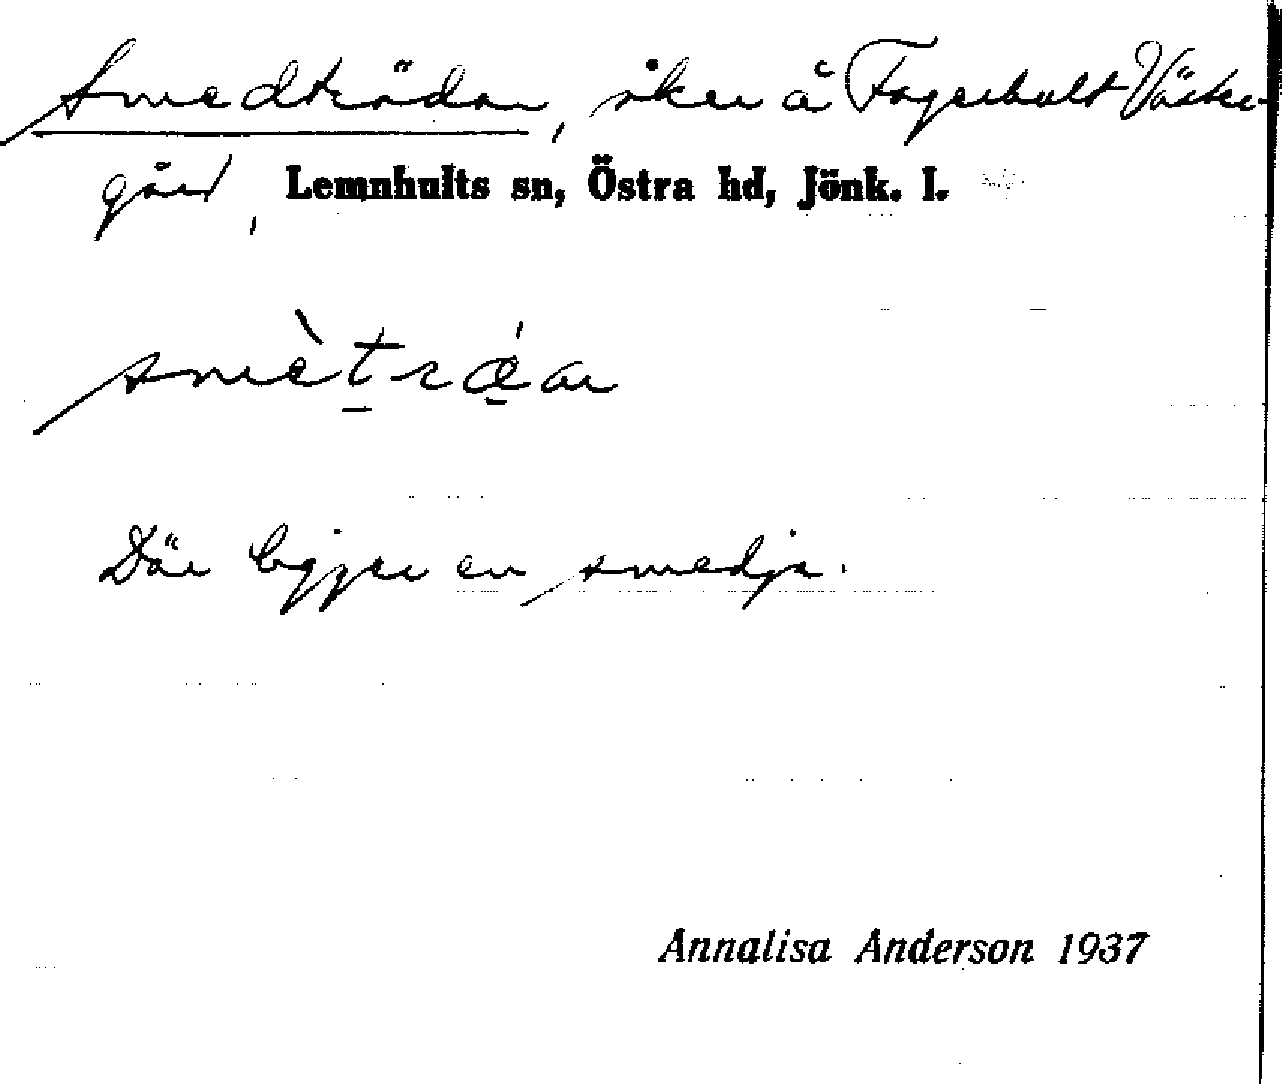 Smedträdan, åker å Fagerhult Väster-
gård, Lemnhults sn, Östra hd, Jönk. l.
smètrǽan
Där ligger en smedja.
Annalisa Anderson 1937